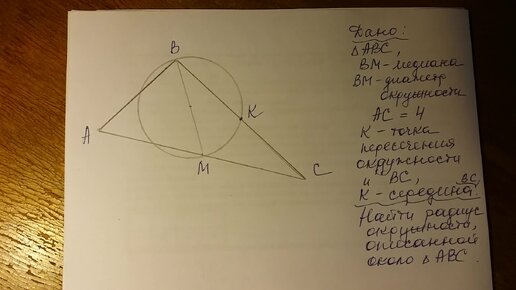 Дано:
△ABC,
BM - медиана
BM - диаметр
окружности
AC = 4
K - точка
пересечения
окружности
и BC,
K - середина BC
Найти радиус
окружность,
описанной
около △ABC.
B
K
A
M
C